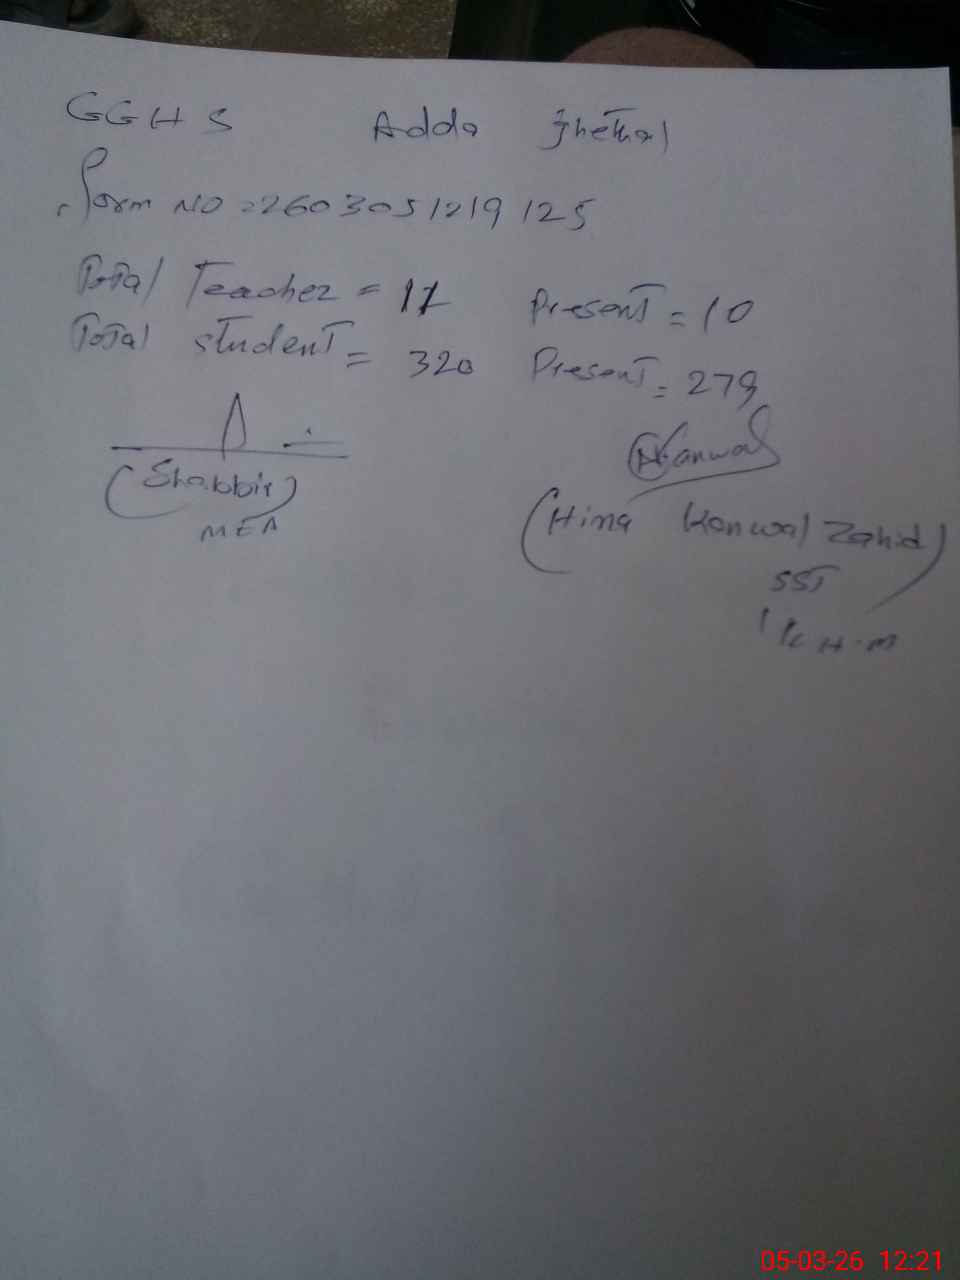 GGHS Adda Jhethal
Form NO = 2603051219125
Total Teacher = 11 Present = 10
Total student = 320 Present = 279
(Shabbir)
MEA
Kanwal
(Hina Kanwal Zahid)
SST
I/C H.M
05-03-26 12:21